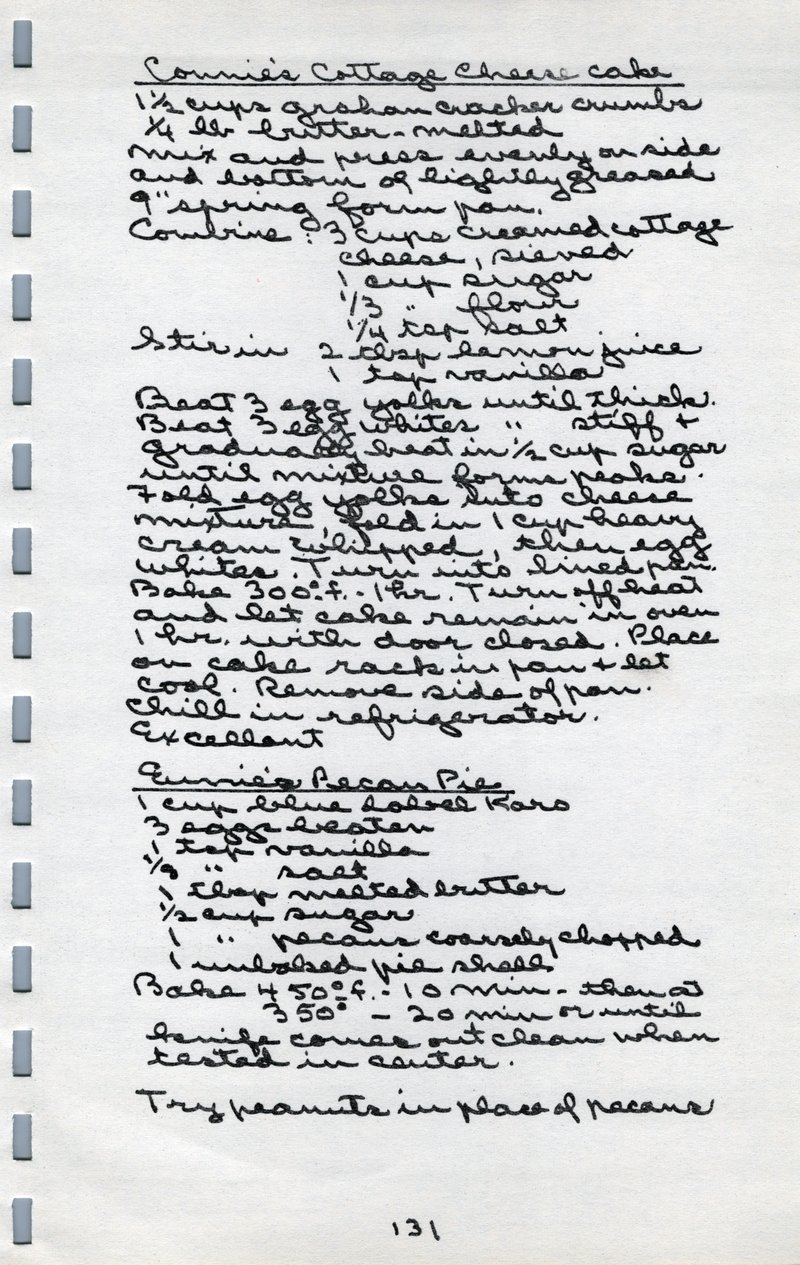 Connie's Cottage Cheese cake
1 1/2 cups graham cracker crumbs
1/4 lb butter - melted
Mix and press evenly on side
and bottom of lightly greased
9" spring form pan.
Combine : 3 cups creamed cottage
cheese, sieved
1 cup sugar
1/3 " flour
1/4 tsp salt
Stir in 2 tbsp lemon juice
1 tsp vanilla
Beat 3 egg yolks until thick.
Beat 3 egg whites " stiff +
gradually beat in 1/2 cup sugar
until mixture forms peaks.
Fold egg yolks into cheese
mixture, fold in 1 cup heavy
cream whipped, then egg
whites. Turn into lined pan.
Bake 300° f. - 1 hr. Turn off heat
and let cake remain in oven
1 hr. with door closed. Place
on cake rack in pan + let
cool. Remove side of pan.
Chill in refrigerator.
Excellent
Eunie's Pecan Pie
1 cup blue Label Karo
3 eggs beaten
1 tsp vanilla
1/8 " salt
1 tbsp melted butter
1/2 cup sugar
1 " pecans coarsely chopped
1 unbaked pie shell
Bake 450° f. - 10 min - then at
350° - 20 min or until
knife comes out clean when
tested in center.
Try peanuts in place of pecans
131